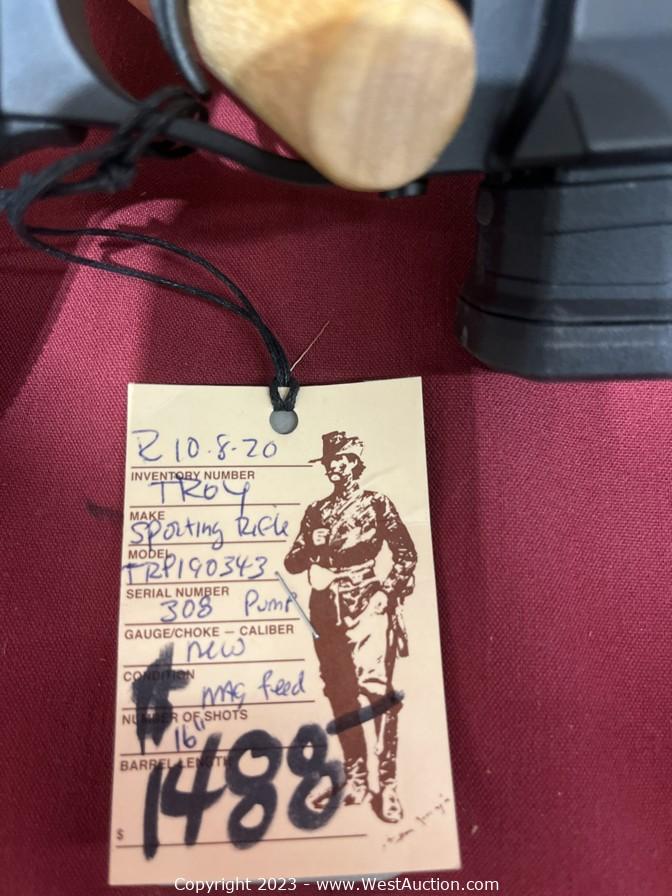 R 10-8-20
INVENTORY NUMBER
TROY
MAKE
Sporting Rifle
MODEL
TRP190343
SERIAL NUMBER
308 Pump
GAUGE/CHOKE — CALIBER
New
CONDITION
MAG feed
NUMBER OF SHOTS
16"
BARREL LENGTH
$ 1488-
$
Copyright 2023 - www.WestAuction.com